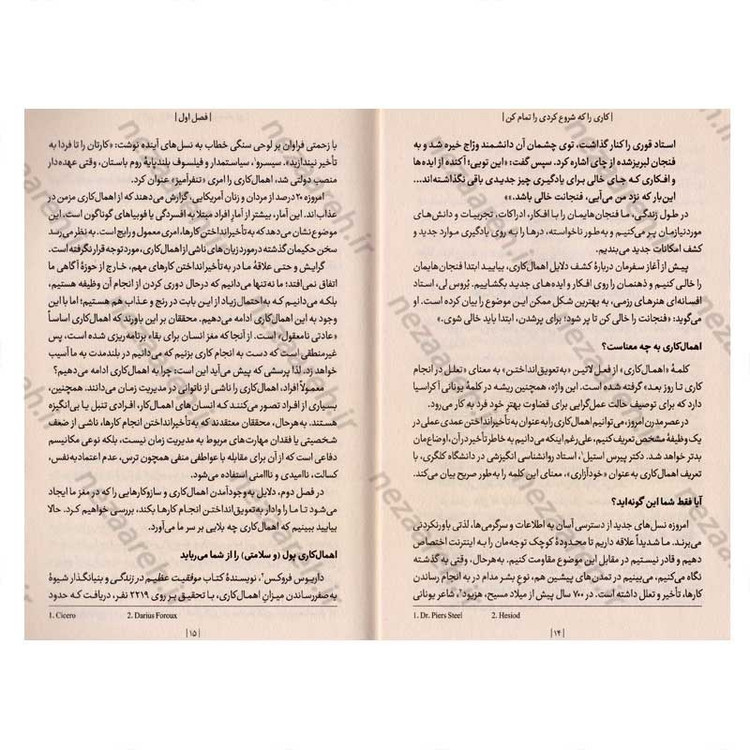 | کاری را که شروع کردی را تمام کن |
استاد قوری را کنار گذاشت، توی چشمان آن دانشمند وراج خیره شد و به
فنجان لبریزشده از چای اشاره کرد. سپس گفت: «این تویی؛ آکنده از ایده‌ها
و افکاری که جای خالی برای یادگیری چیز جدیدی باقی نگذاشته‌اند...
این‌بار که نزد من می‌آیی، فنجانت خالی باشد.»»
در طول زندگی، ما فنجان‌هایمان را با افکار، ادراکات، تجربیات و دانش‌های
موردنیازمان پر می‌کنیم و به‌طور ناخواسته، درها را به روی یادگیری موارد جدید و
کشف امکانات جدید می‌بندیم.
پیش از آغاز سفرمان دربارۀ کشف دلایل اهمال‌کاری، بیایید ابتدا فنجان‌هایمان
را خالی کنیم و ذهنمان را روی افکار و ایده‌های جدید بگشاییم. بُروس لی، استاد
افسانه‌ای هنرهای رزمی، به بهترین شکل ممکن این موضوع را بیان کرده است. او
می‌گوید: «فنجانت را خالی کن تا پر شود؛ برای پرشدن، ابتدا باید خالی شوی.»
اهمال‌کاری به چه معناست؟
کلمۀ «اهمال‌کاری» از فعل لاتین «به‌تعویق‌انداختن» به معنای «تعلل در انجام
کاری تا روز بعد» گرفته شده است. این واژه، همچنین ریشه در کلمۀ یونانی آکراسیا
دارد که برای توصیف حالت عمل‌گرایی برای قضاوت بهتر خود فرد به کار می‌رود.
در عصر مدرن امروز، می‌توانیم اهمال‌کاری را به عنوان به تأخیرانداختن عمدی عملی در
یک وظیفۀ مشخص تعریف کنیم، علی‌رغم اینکه می‌دانیم به خاطر تأخیر در آن، اوضاع‌مان
بدتر خواهد شد. دکتر پیرس استیل¹، استاد روانشناسی انگیزشی در دانشگاه کلگری، با
تعریف اهمال‌کاری به عنوان «خودآزاری»، معنای این کلمه را به‌طور صریح بیان می‌کند.
آیا فقط شما این گونه‌اید؟
امروزه نسل‌های جدید از دسترسی آسان به اطلاعات و سرگرمی‌ها، لذتی باورنکردنی
می‌برند. ما شدیداً علاقه داریم تا محدودۀ کوچک توجه‌مان را به اینترنت اختصاص
دهیم و قادر نیستیم در مقابل این موضوع مقاومت کنیم. به‌هرحال، وقتی به گذشته
نگاه می‌کنیم، می‌بینیم در تمدن‌های پیشین هم، نوع بشر مدام در به انجام رساندن
کارها، تأخیر و تعلل داشته است. در ۷۰۰ سال پیش از میلاد مسیح، هزیود²، شاعر یونانی
1. Dr. Piers Steel 2. Hesiod
| ۱۴ |
| فصل اول |
با زحمتی فراوان بر لوحی سنگی خطاب به نسل‌های آینده نوشت: «کارتان را تا فردا به
تأخیر نیندازید». سیسرو¹، سیاستمدار و فیلسوف بلندپایۀ روم باستان، وقتی عهده‌دار
منصب دولتی شد، اهمال‌کاری را امری «تنفرآمیز» عنوان کرد.
امروزه ۲۰ درصد از مردان و زنان آمریکایی، گزارش می‌دهند که از اهمال‌کاری مزمن در
عذاب‌اند. این آمار، بیشتر از آمار افراد مبتلا به افسردگی یا فوبیاهای گوناگون است. این
موضوع نشان می‌دهد که به‌تأخیرانداختن کارها، امری معمول و رایج است. به نظر می‌رسد
سخن حکیمان گذشته در مورد زیان‌های ناشی از اهمال‌کاری، مورد توجه قرار نگرفته است.
گرایش و حتی علاقۀ ما در به‌تأخیرانداختن کارهای مهم، خارج از حوزۀ آگاهی ما
اتفاق نمی‌افتد؛ ما نه‌تنها می‌دانیم که درحال دوری کردن از انجام آن وظیفه هستیم،
بلکه می‌دانیم که به‌احتمال زیاد از این بابت در رنج و عذاب هم هستیم؛ اما با این
وجود به اهمال‌کاری ادامه می‌دهیم. محققان بر این باورند که اهمال‌کاری اساساً
«عادتی نامعقول» است. از آنجا که مغز انسان برای بقاء برنامه‌ریزی شده است، پس
غیرمنطقی است که دست به انجام کاری بزنیم که می‌دانیم در بلندمدت به ما آسیب
خواهد زد. لذا پرسشی که پیش می‌آید این است: چرا به اهمال‌کاری ادامه می‌دهیم؟
معمولاً افراد، اهمال‌کاری را ناشی از ناتوانی در مدیریت زمان می‌دانند. همچنین،
بسیاری از افراد تصور می‌کنند که انسان‌های اهمال‌کار، افرادی تنبل یا بی‌انگیزه
هستند. به‌هرحال، محققان معتقدند که به تأخیرانداختن انجام کارها، ناشی از ضعف
شخصیتی یا فقدان مهارت‌های مربوط به مدیریت زمان نیست، بلکه نوعی مکانیسم
دفاعی است که از آن برای مقابله با عواطفی منفی همچون ترس، عدم اعتمادبه‌نفس،
کسالت، ناامیدی و ناامنی استفاده می‌شود.
در فصل دوم، دلایل به‌وجودآمدن اهمال‌کاری و سازوکارهایی را که در مغز ما ایجاد
می‌شود تا ما را وادار به‌تعویق‌انداختن انجام کارها بکند، بررسی خواهیم کرد. حالا
بیایید ببینیم که اهمال‌کاری چه بلایی بر سر ما می‌آورد.
اهمال‌کاری پول (و سلامتی) را از شما می‌رباید
داریوس فروکس²، نویسندۀ کتاب موفقیت عظیم در زندگی و بنیانگذار شیوۀ
به صفررساندن میزان اهمال‌کاری، با تحقیق بر روی ۲۲۱۹ نفر، دریافت که حدود
1. Cicero 2. Darius Foroux
| ۱۵ |
nezaareh.ir